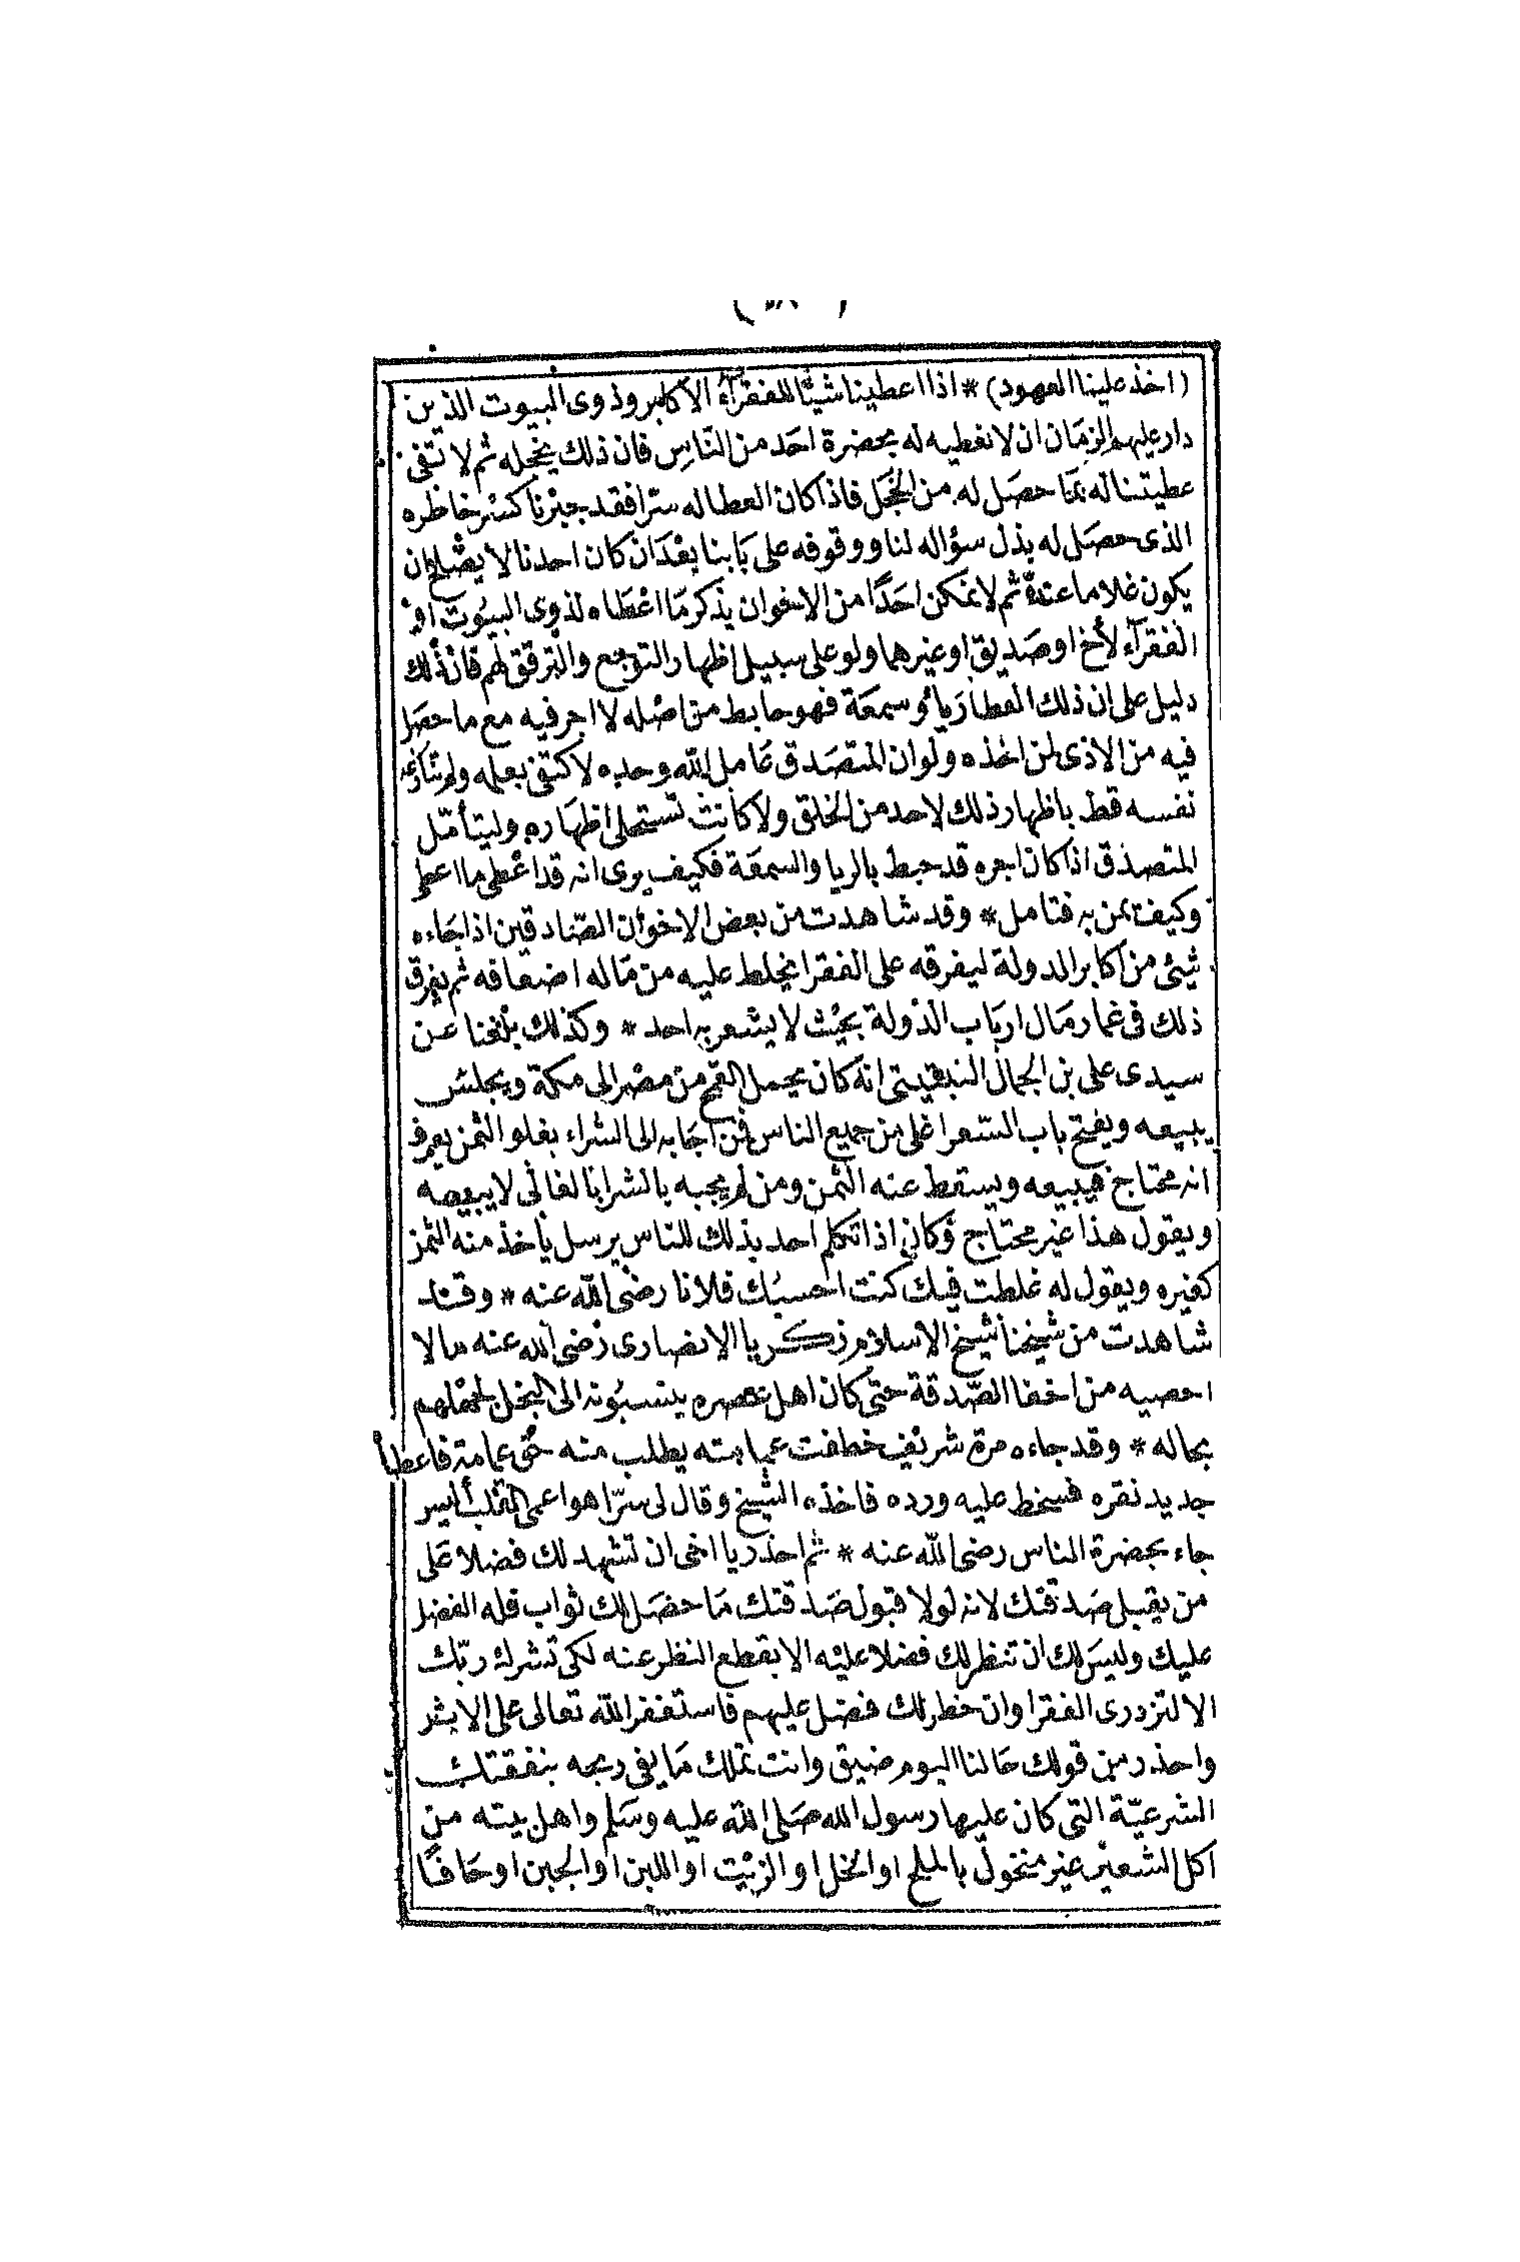 (اخذ علينا العهود) * اذا اعطينا شيئا للفقرآء الاكابر وذوى البيوت الذين
دار عليهم الزمان ان لا نعطيه له بحضرة احد من الناس فان ذلك يخجله ثم لا تفى
عطيتنا له بما حصل له من الخجل فاذا كان العطا له سترا فقد جبرنا كسر خاطره
الذى حصل له بذل سؤاله لنا ووقوفه على بابنا بعد ان كان احدنا لا يصلح ان
يكون غلاما عنده ثم لا نمكن احدا من الاخوان يذكر ما اعطاه لذوى البيوت او
الفقرآء لأخ او صديق او غيرهما ولو على سبيل اظهار التوجع والترقق لهم فان ذلك
دليل على ان ذلك العطا ريا وسمعة فهو حابط من اصله لا اجر فيه مع ما حصل
فيه من الاذى لمن اخذه ولو ان المتصدق عامل الله وحده لاكتفى بعلمه ولم تنازعه
نفسه قط باظهار ذلك لاحد من الخلق ولا كانت تستحلى اظهاره وليتأمل
المتصدق اذا كان اجره قد حبط بالريا والسمعة فكيف يرى انه قد اعطى ما اعطى
وكيف يمن به فتامل * وقد شاهدت من بعض الاخوان الصادقين اذا جاءه
شيئ من اكابر الدولة ليفرقه على الفقرا يخلط عليه من ماله اضعافه ثم يفرق
ذلك فى غمار مال ارباب الدولة بحيث لا يشعر به احد * وكذلك بلغنا عن
سيدى على بن الجمال النبتيتى انه كان يحمل القمح من مصر الى مكة ويجلس
يبيعه ويفتح باب السعر اغلى من جميع الناس فمن اجابه الى الشراء بغلو الثمن يعرف
انه محتاج فيبيعه ويسقط عنه الثمن ومن لم يجبه بالشرا بالغالى لا يبيعه
ويقول هذا غير محتاج وكان اذا تكلم احد بذلك للناس يرسل يأخذ منه الثمن
كغيره ويقول له غلطت فيك كنت احسبك فلانا رضى الله عنه * وقد
شاهدت من شيخنا شيخ الاسلام زكريا الانصارى رضى الله عنه ما لا
احصيه من اخفا الصدقة حتى كان اهل عصره ينسبونه الى البخل لجهلهم
بحاله * وقد جاءه مرة شريف خطفت عمامته يطلب منه حق عمامة فاعطاه
جديد نقره فسخط عليه ورده فاخذه الشيخ وقال لى سترا هو اعمى القلب أليس
جاء بحضرة الناس رضى الله عنه * ثم احذر يا اخى ان تشهد لك فضلا على
من يقبل صدقتك لانه لولا قبول صدقتك ما حصل لك ثواب فله الفضل
عليك وليس لك ان تنظر لك فضلا عليه الا بقطع النظر عنه لكى تشرك ربك
الا لتزدرى الفقرا وان خطر لك فضل عليهم فاستغفر الله تعالى على الاثر
واحذر من قولك حالنا اليوم ضيق وانت تملك ما يفى ربحه بنفقتك
الشرعية التى كان عليها رسول الله صلى الله عليه وسلم واهل بيته من
اكل الشعير غير منخول بالملح او الخل او الزيت او اللبن او الجبن او حافا